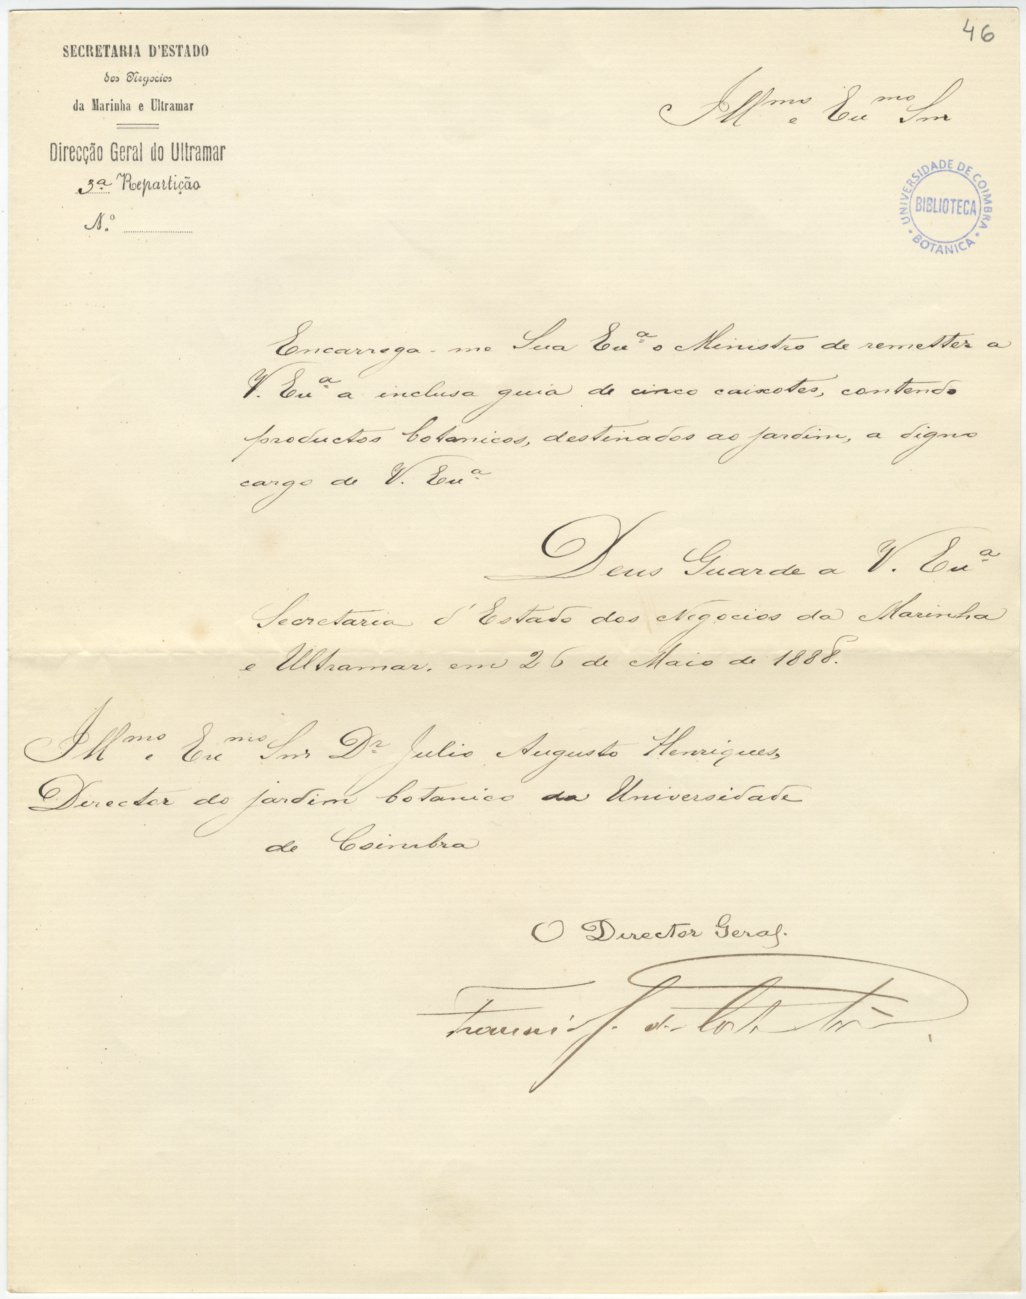 46
SECRETARIA D'ESTADO
dos Negocios
da Marinha e Ultramar
Direcção Geral do Ultramar
3ª Repartição
N.º
Illmo e Exmo Snr
UNIVERSIDADE DE COIMBRA
BIBLIOTECA
BOTANICA
Encarrega-me Sua Exª o Ministro de remetter a
V. Exª a inclusa guia de cinco caixotes, contendo
productos botanicos, destinados ao jardim, a digno
cargo de V. Exª
Deus Guarde a V. Exª
Secretaria d'Estado dos Negocios da Marinha
e Ultramar, em 26 de Maio de 1888.
Illmo e Exmo Snr Dr Julio Augusto Henriques,
Director do jardim botanico da Universidade
de Coimbra
O Director Geral.
Francisco J. da Costa e Silva